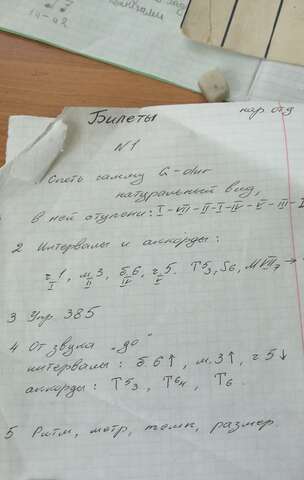 14-02
Билеты
нар. отд
N1
Спеть гамму G-dur
натуральный вид,
В ней ступени: I-VII-II-I-IV-V-III-I
2 Интервалы и аккорды:
ч.1, м.3, б.6, ч.5. T53, S6, MVII7 →
I II IV IV
3 Упр 385
4 От звука "до"
интервалы: б.6↑, м.3↑, ч5↓
аккорды: T53, T64, T6.
5 Ритм, метр, темп, размер.